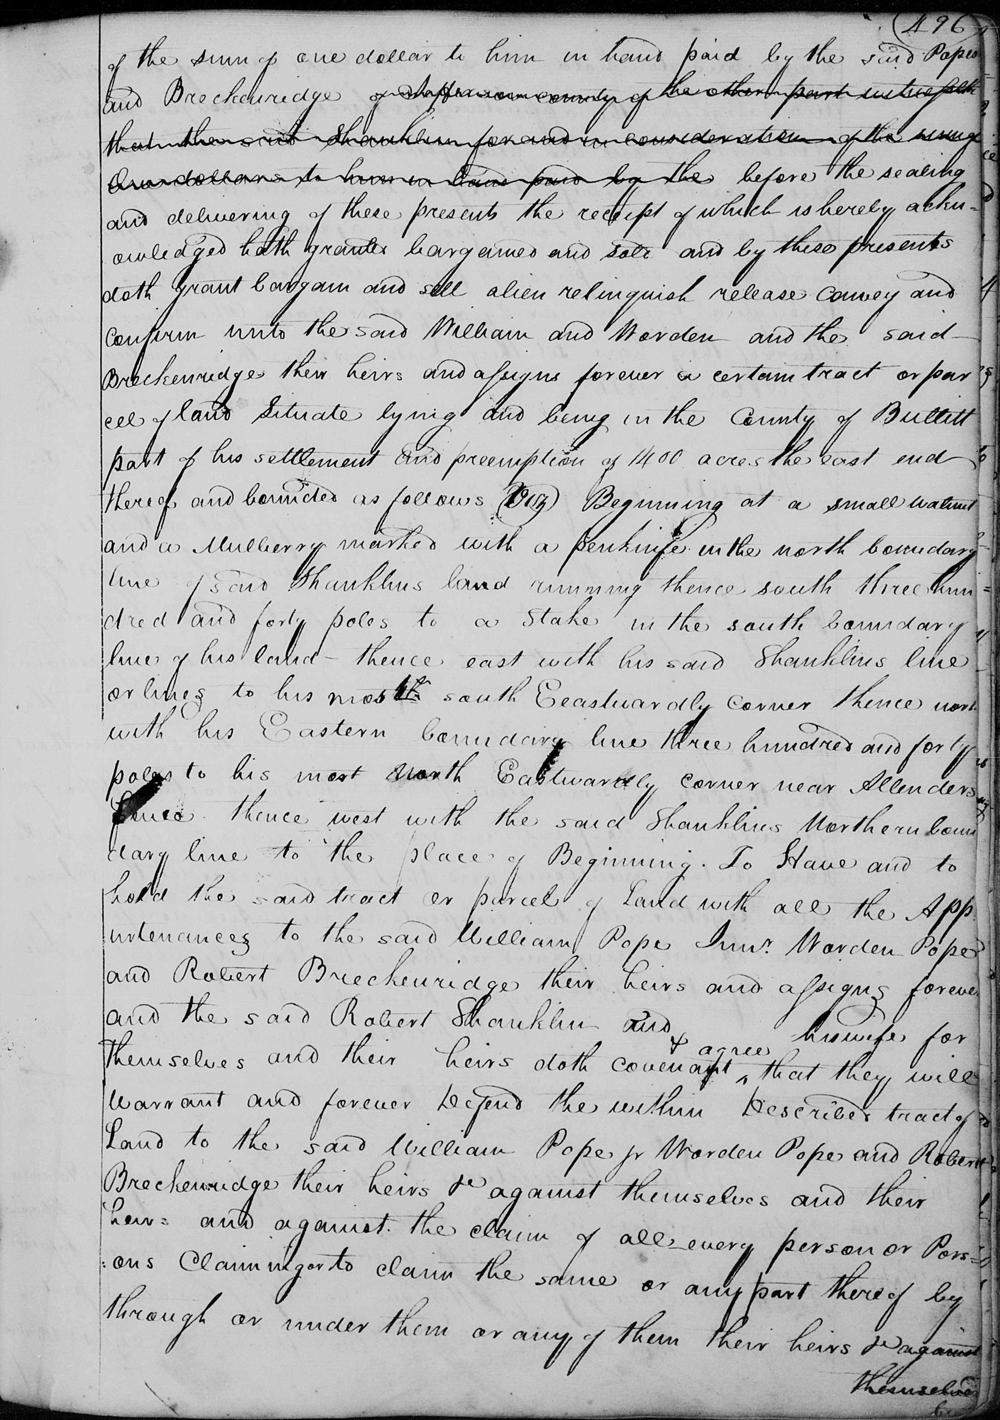 496
of the sum of one dollar to him in hand paid by the said Popes
and Breckenridge of Jefferson county of the other part witnesseth
that the said Shanklin for and in consideration of the sum of
One dollars to him in hand paid by the before the sealing
and delivering of these presents the receipt of which is hereby ackn-
owledged hath granted bargained and sold and by these presents
doth grant bargain and sell alien relinquish release convey and
confirm unto the said William and Worden and the said
Breckenridge their heirs and assigns forever a certain tract or par
cel of land Situate lying and being in the County of Bullitt
part of his settlement and preemption of 1400 acres the east end
thereof and bounded as follows (Viz) Beginning at a small walnut
and a Mulberry marked with a penknife in the north boundary
line of said Shanklins land running thence south three hun
dred and forty poles to a Stake in the south boundary
line of his land - thence east with his said Shanklins line
or lines to his most south Eeastwardly corner thence north
with his Eastern boundary line three hundred and forty
poles to his most North Eastwardly corner near Allenders
fence. thence west with the said Shanklins Northern boun
dary line to the place of Beginning. To Have and to
hold the said tract or parcel of Land with all the App
urtenances to the said William Pope Junr. Worden Pope
and Robert Breckenridge their heirs and assigns forever
and the said Robert Shanklin and his wife for
themselves and their heirs doth covenant & agree that they will
warrant and forever Defend the within Described tract of
Land to the said William Pope jr Worden Pope and Robert
Breckenridge their heirs &c against themselves and their
heirs and against the claim of all every person or Pers=
:ons Claiming or to claim the same or any part thereof by
through or under them or any of them their heirs &c against
themselves